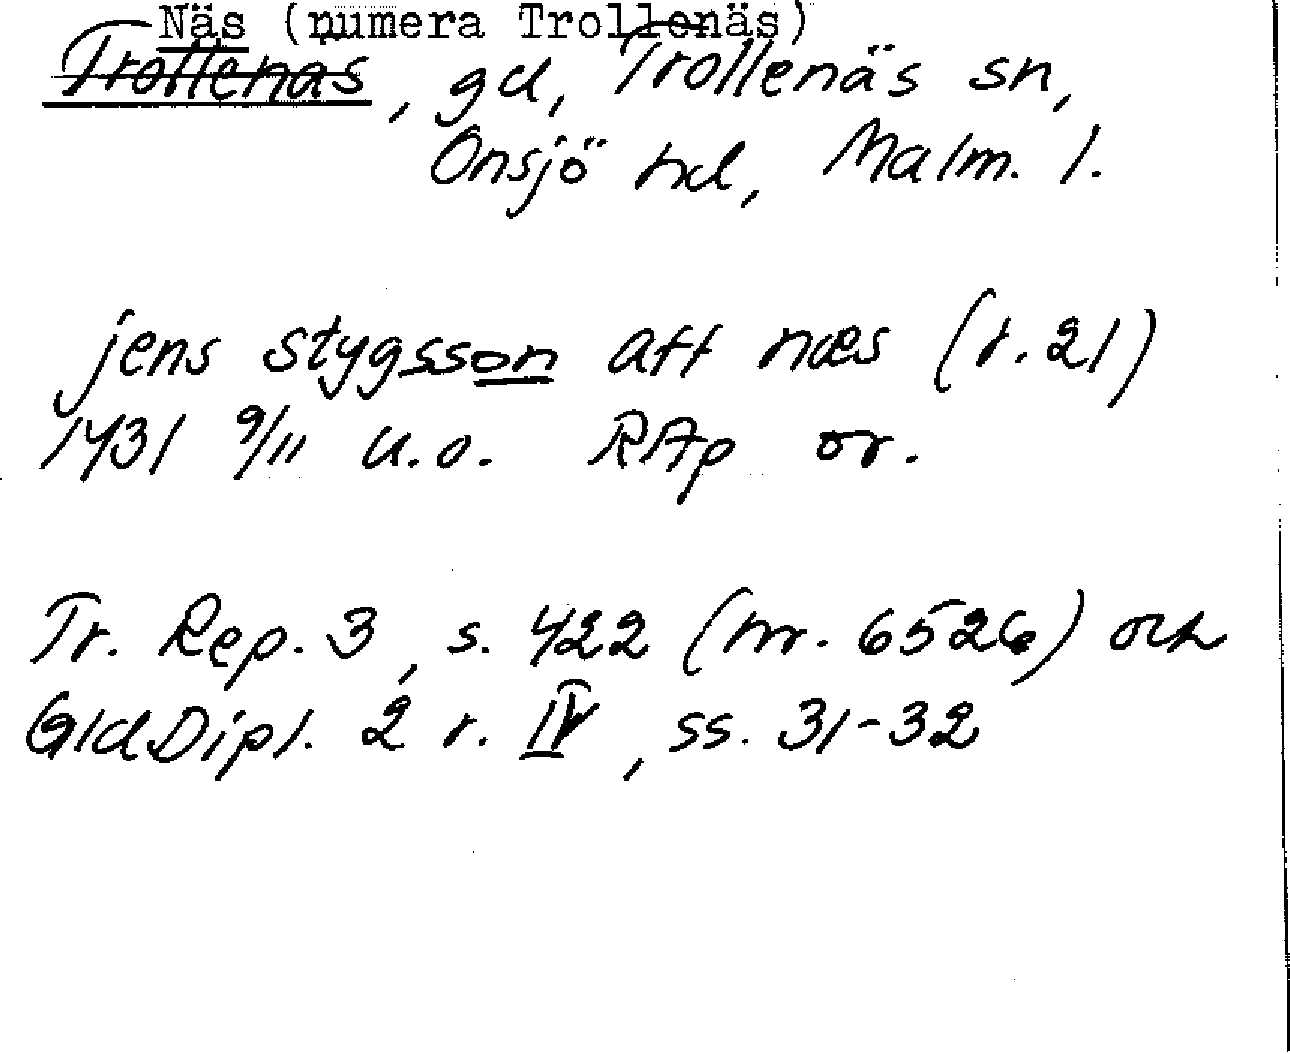 Näs (numera Trollenäs)
Trollenäs, gd, Trollenäs sn,
Onsjö hd, Malm. l.
jens stygsson att næs (r. 21)
1431 9/11 u.o. RAp or.
Tr. Rep. 3, s. 422 (nr. 6526) och
GldDipl. 2 r. IV, ss. 31-32